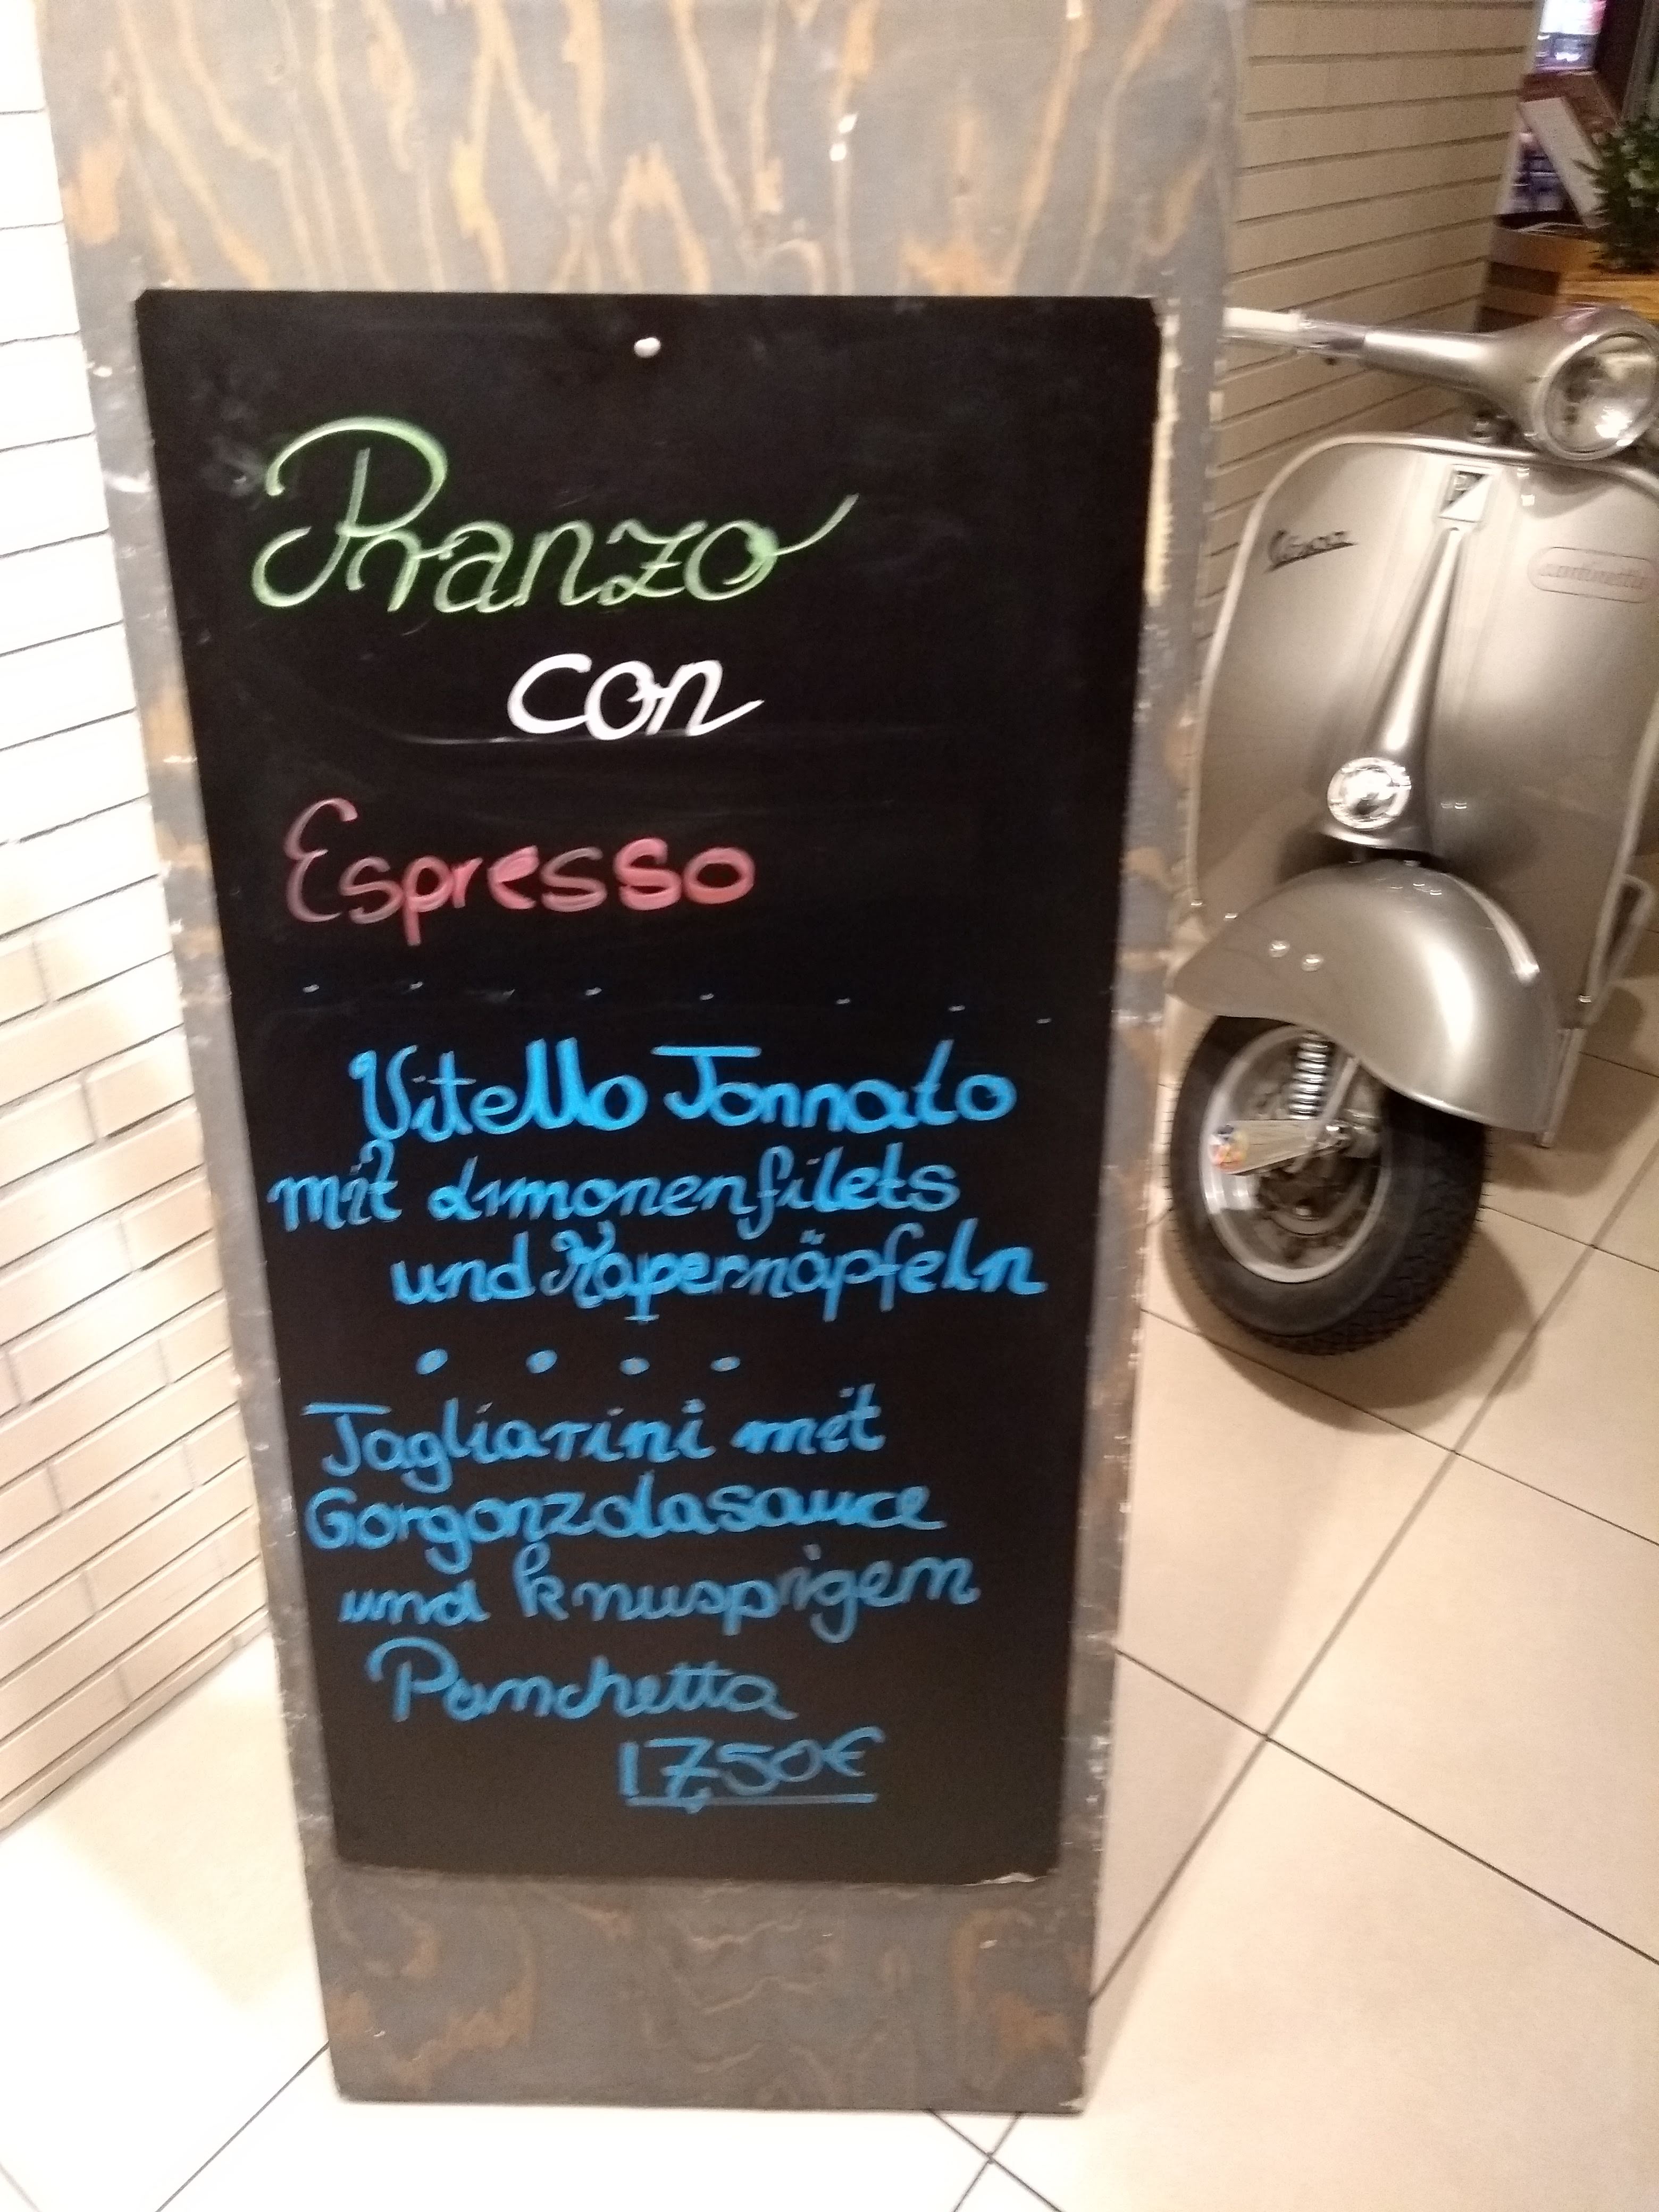 Pranzo
con
Espresso
Vitello Tonnato
mit Limonenfilets
und Kapernäpfeln
Tagliarini mit
Gorgonzolasauce
und knusprigem
Panchetta
17,50€
Vespa
P